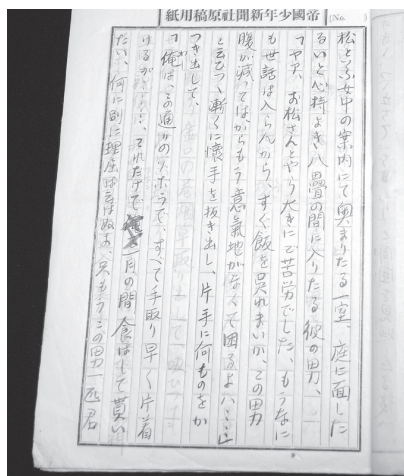 帝國少年新聞社原稿用紙
(No.　　)
松といふ女中の案内にて奥まりたる一室、庭に面した
るいと心持よき八疊の間に入りたる彼の男、
「ヤア、お松さんとやら大きにご苦労でした、もうなに
も世話は入らんから、すぐ飯を呉れまいか、この男
腹が減つては、からもう意氣地がなくて困るよハ……」
と云ひつつ漸くに懐手を抜き出し、片手に何ものをか
つき出して、
「俺は、この通りのズボラで、すべて手取り早く片着
けるが、それだけで一月の間食はして貰い
たい、何に別に理屈は云はぬよ、只もうこの男一匹君